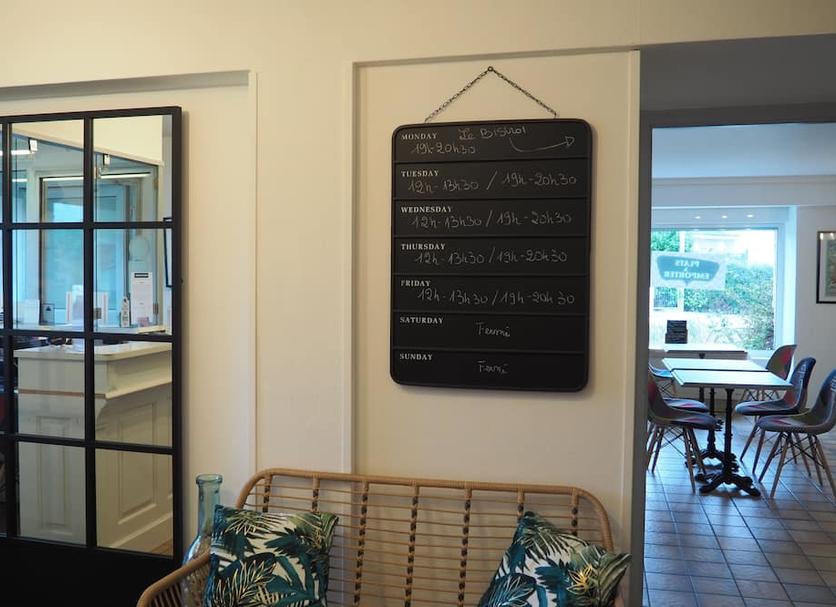 MONDAY Le Bistrot
19h-20h30
TUESDAY
12h-13h30 / 19h-20h30
WEDNESDAY
12h-13h30 / 19h-20h30
THURSDAY
12h-13h30 / 19h-20h30
FRIDAY
12h-13h30 / 19h-20h30
SATURDAY
Fermé
SUNDAY
Fermé
PLATS
EMPORTER